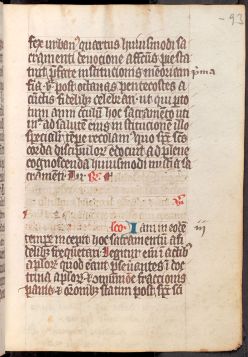 93
fex urbanus quartus huiusmodi sa
cramenti devocione affectus pie sta
tuit prefate institucionis memoriam
prima
feria v post octavas pentecostes a
cunctis fidelibus celebrari ut qui per to
tum anni circulum hoc sacramento uti
mur ad salutem eius institucionem illo
specialiter tempore recolamus quo spiritus sanctus
corda discipulorum edocuit ad plene
cognoscenda huiusmodi misteria sa
cramenti
Iam in eodem
tempore incepit hoc sacramentum a fi
iii
delibus frequentari Legitur enim in actibus
apostolorum quod erant perseverantes in doc
trina apostolorum et communicatione fractionis
panis et orationibus statim post spiritus sancti